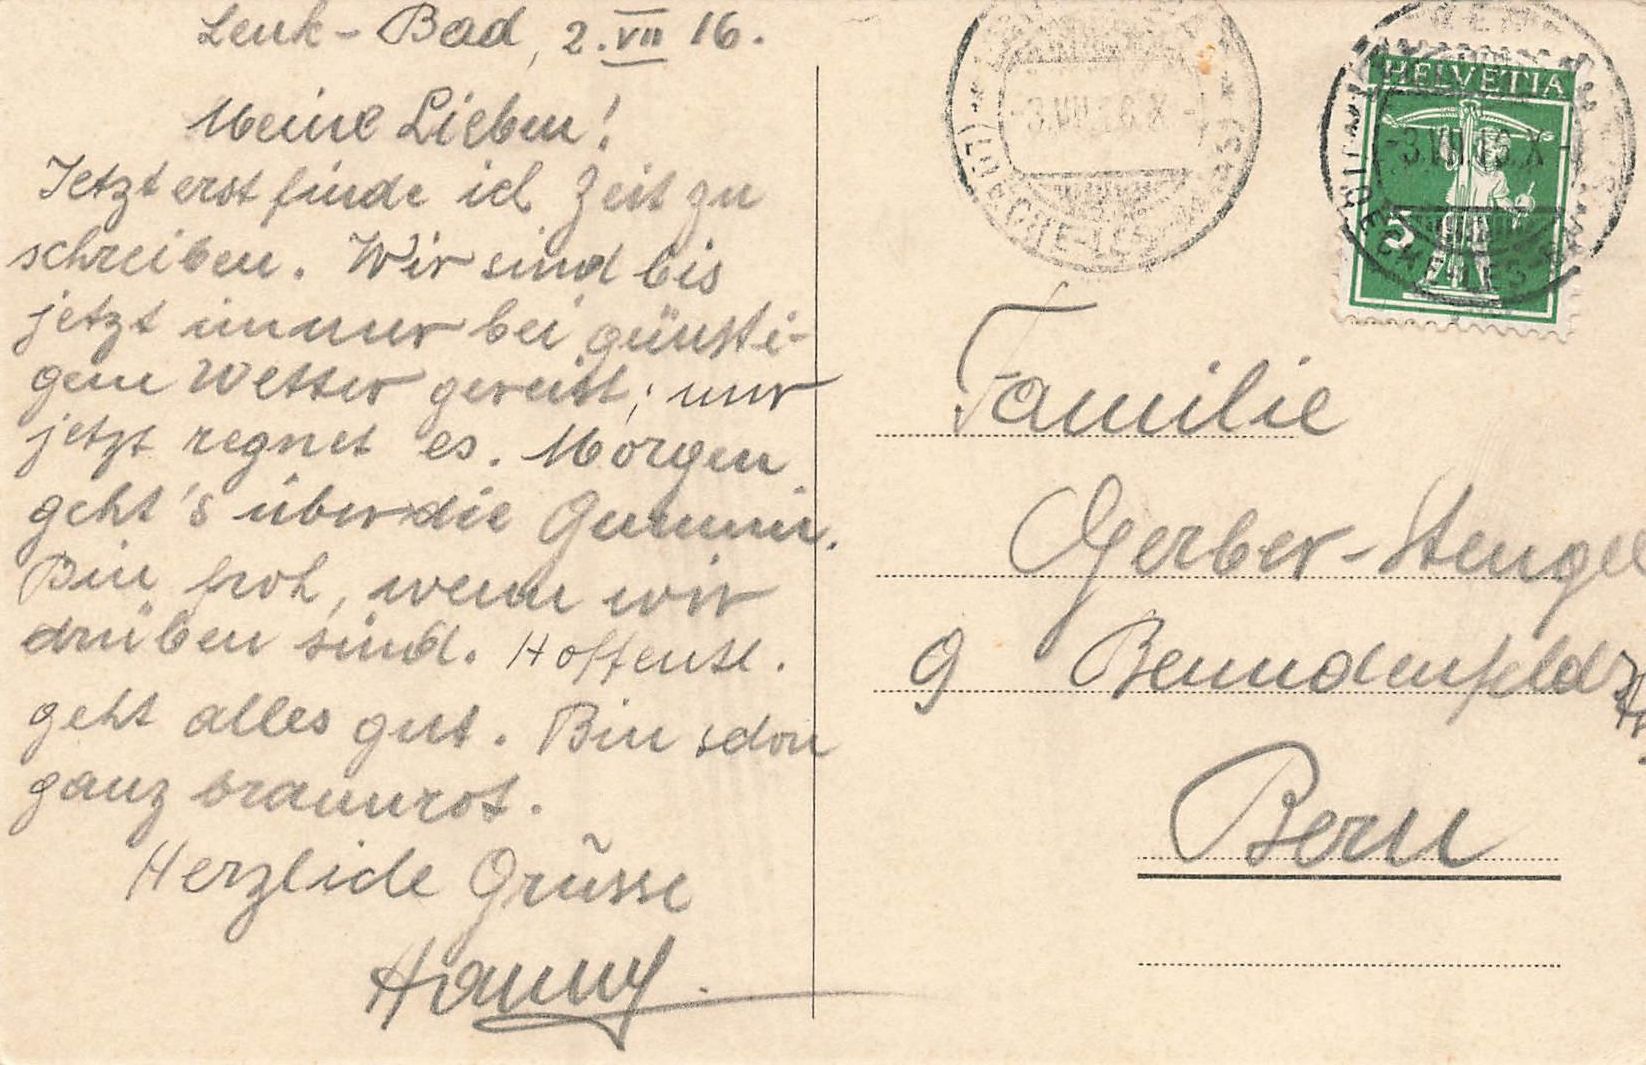 Leuk-Bad, 2. VII 16.
Meine Lieben!
Jetzt erst finde ich Zeit zu
schreiben. Wir sind bis
jetzt immer bei günsti-
gem Wetter gereist; nur
jetzt regnet es. Morgen
geht's über die Gemmi.
Bin froh, wenn wir
drüben sind. Hoffentl.
geht alles gut. Bin schon
ganz braunrot.
Herzliche Grüsse
Hanny.
HELVETIA
5
-3.VII.16.X-
LOÈCHE-LES-
Familie
Gerber-Stengel
9 Beundenfeld
Bern